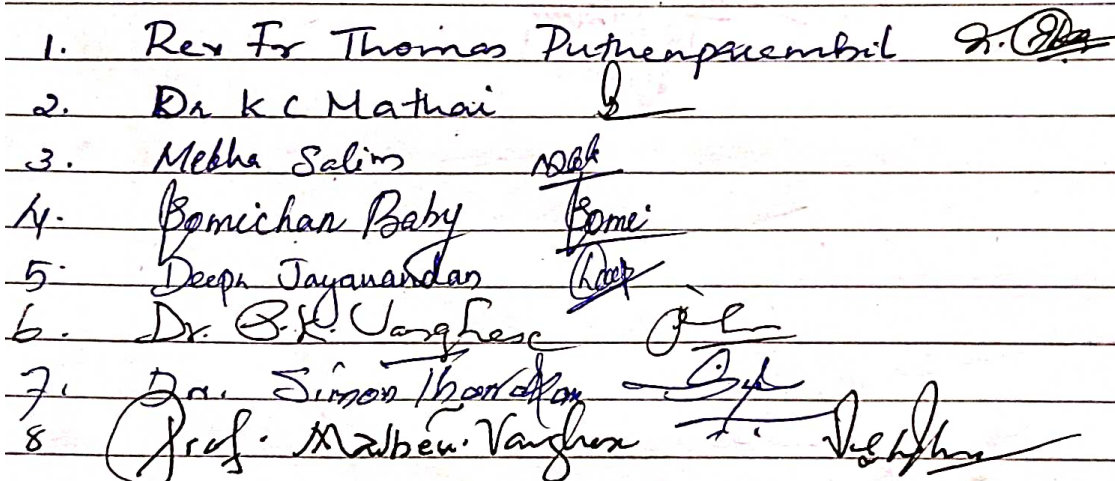 1. Rev Fr Thomas Puthenparembil
2. Dr K C Mathai
3. Mebha Salim
4. Bomichan Baby Bomi
5. Deepa Jayanandan Deep
6. Dr. P.K. Varghese
7. Dr. Simon
8 Prof. Mathew. Varghese